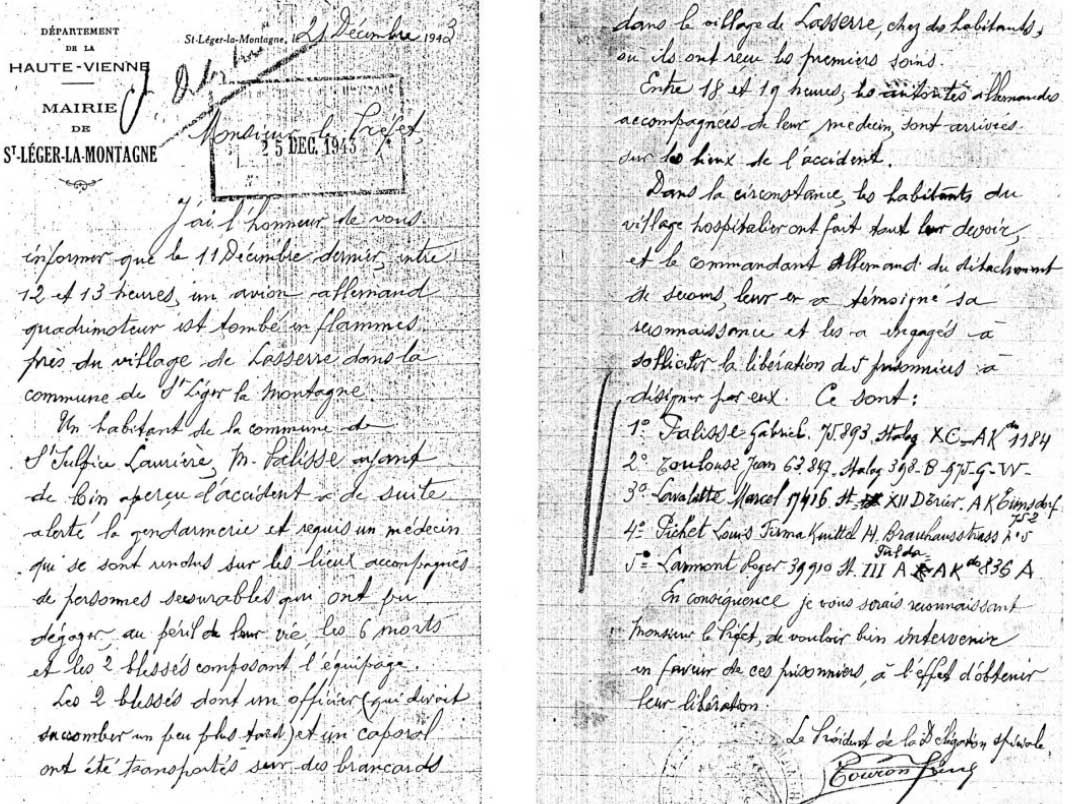 DÉPARTEMENT
DE LA
HAUTE-VIENNE
MAIRIE
DE
ST-LÉGER-LA-MONTAGNE
St-Léger-la-Montagne, le 21 Décembre 1943
Monsieur le Préfet,
25 DEC. 1943
J'ai l'honneur de vous
informer que le 11 Décembre dernier, entre
12 et 13 heures, un avion allemand
quadrimoteur est tombé en flammes
près du village de Lasserre dans la
commune de St Léger la Montagne.
Un habitant de la commune de
St Sulpice Laurière, M. Palisse ayant
de loin aperçu l'accident a de suite
alerté la gendarmerie et requis un médecin
qui se sont rendus sur les lieux accompagnés
de personnes secourables qui ont pu
dégager, au péril de leur vie, les 6 morts
et les 2 blessés composant l'équipage.
Les 2 blessés dont un officier (qui devait
succomber un peu plus tard) et un caporal
ont été transportés sur des brancards
dans le village de Lasserre, chez des habitants,
où ils ont reçu les premiers soins.
Entre 18 et 19 heures, les autorités allemandes
accompagnées de leur médecin, sont arrivées
sur les lieux de l'accident.
Dans la circonstance, les habitants du
village hospitalier ont fait tout leur devoir,
et le commandant allemand du détachement
de secours, leur en a témoigné sa
reconnaissance et les a engagés à
solliciter la libération de 5 prisonniers à
désigner par eux. Ce sont :
1° Palisse Gabriel. 75.893. Stalag XC-AK 1184
2° Toulouse Jean 63.847. Stalag 398-B-975-G-W-
3° Lavalette Marcel 17416 St. XII D Trier. AK Eimsdorf
752
4° Pichet Louis Firma Knittel H. Brauhausstrass n° 5
Fulda
5° Larmont Roger 39910 St. III A AK do 836 A
En conséquence je vous serais reconnaissant
Monsieur le Préfet, de vouloir bien intervenir
en faveur de ces prisonniers, à l'effet d'obtenir
leur libération.
Le Président de la Délégation spéciale,